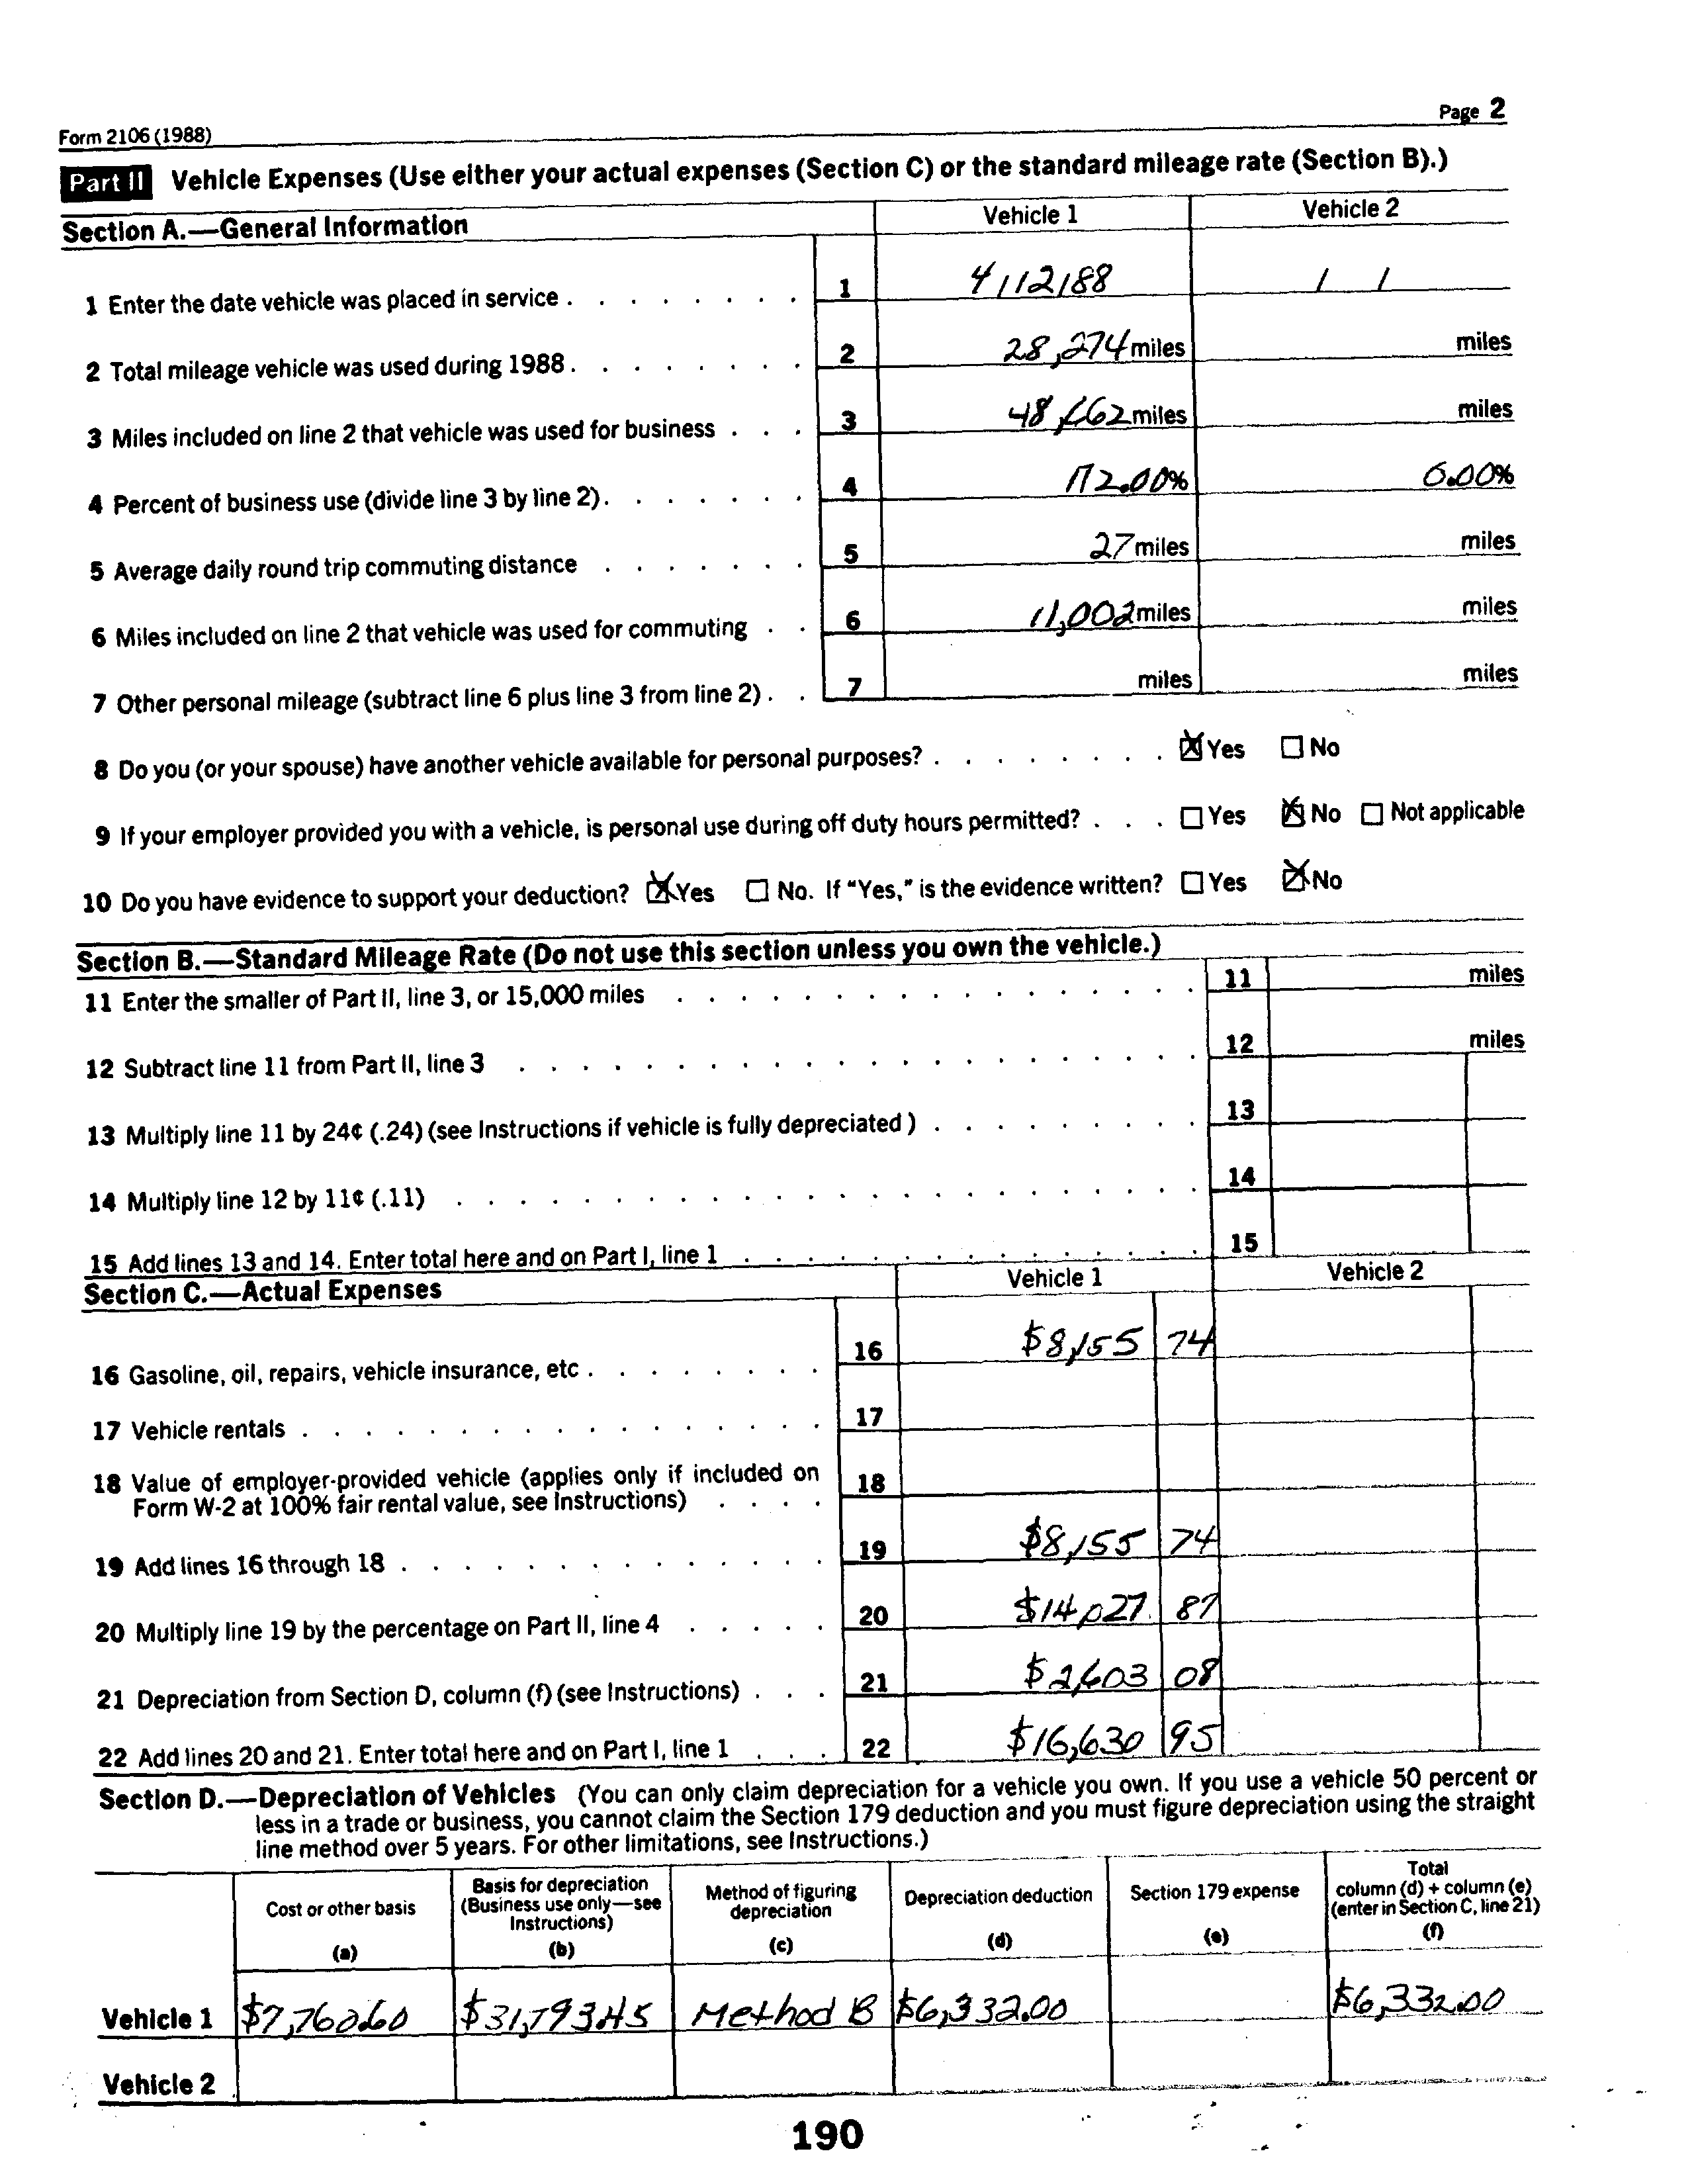 Form 2106 (1988) Page 2
Part II Vehicle Expenses (Use either your actual expenses (Section C) or the standard mileage rate (Section B).)
Section A.—General Information Vehicle 1 Vehicle 2
1 Enter the date vehicle was placed in service . . . . . . . . 1 4/12/88 / /
2 Total mileage vehicle was used during 1988 . . . . . . . . 2 28,274 miles miles
3 Miles included on line 2 that vehicle was used for business . . . 3 48,662 miles miles
4 Percent of business use (divide line 3 by line 2) . . . . . . . 4 172.00% 0.00%
5 Average daily round trip commuting distance . . . . . . . 5 27 miles miles
6 Miles included on line 2 that vehicle was used for commuting . . 6 11,002 miles miles
7 Other personal mileage (subtract line 6 plus line 3 from line 2) . . 7 miles miles
8 Do you (or your spouse) have another vehicle available for personal purposes? . . . . . . . . ☒ Yes ☐ No
9 If your employer provided you with a vehicle, is personal use during off duty hours permitted? . . . ☐ Yes ☒ No ☐ Not applicable
10 Do you have evidence to support your deduction? ☒ Yes ☐ No. If "Yes," is the evidence written? ☐ Yes ☒ No
Section B.—Standard Mileage Rate (Do not use this section unless you own the vehicle.)
11 Enter the smaller of Part II, line 3, or 15,000 miles . . . . . . . . . . . . . . . . . 11 miles
12 Subtract line 11 from Part II, line 3 . . . . . . . . . . . . . . . . . . . . . . 12 miles
13 Multiply line 11 by 24¢ (.24) (see Instructions if vehicle is fully depreciated ) . . . . . . . . . 13
14 Multiply line 12 by 11¢ (.11) . . . . . . . . . . . . . . . . . . . . . . . . 14
15 Add lines 13 and 14. Enter total here and on Part I, line 1 . . . . . . . . . . . . . . . 15
Section C.—Actual Expenses Vehicle 1 Vehicle 2
16 Gasoline, oil, repairs, vehicle insurance, etc . . . . . . . . 16 $8,155 74
17 Vehicle rentals . . . . . . . . . . . . . . . . . 17
18 Value of employer-provided vehicle (applies only if included on
Form W-2 at 100% fair rental value, see Instructions) . . . . 18
19 Add lines 16 through 18 . . . . . . . . . . . . . . 19 $8,155 74
20 Multiply line 19 by the percentage on Part II, line 4 . . . . . 20 $14,027 87
21 Depreciation from Section D, column (f) (see Instructions) . . . 21 $2,603 08
22 Add lines 20 and 21. Enter total here and on Part I, line 1 . . . 22 $16,630 95
Section D.—Depreciation of Vehicles (You can only claim depreciation for a vehicle you own. If you use a vehicle 50 percent or
less in a trade or business, you cannot claim the Section 179 deduction and you must figure depreciation using the straight
line method over 5 years. For other limitations, see Instructions.)
Cost or other basis (a)
Basis for depreciation (Business use only—see Instructions) (b)
Method of figuring depreciation (c)
Depreciation deduction (d)
Section 179 expense (e)
Total column (d) + column (e) (enter in Section C, line 21) (f)
Vehicle 1 $7,760.60 $31,793.45 Method B $6,332.00 $6,332.00
Vehicle 2
190